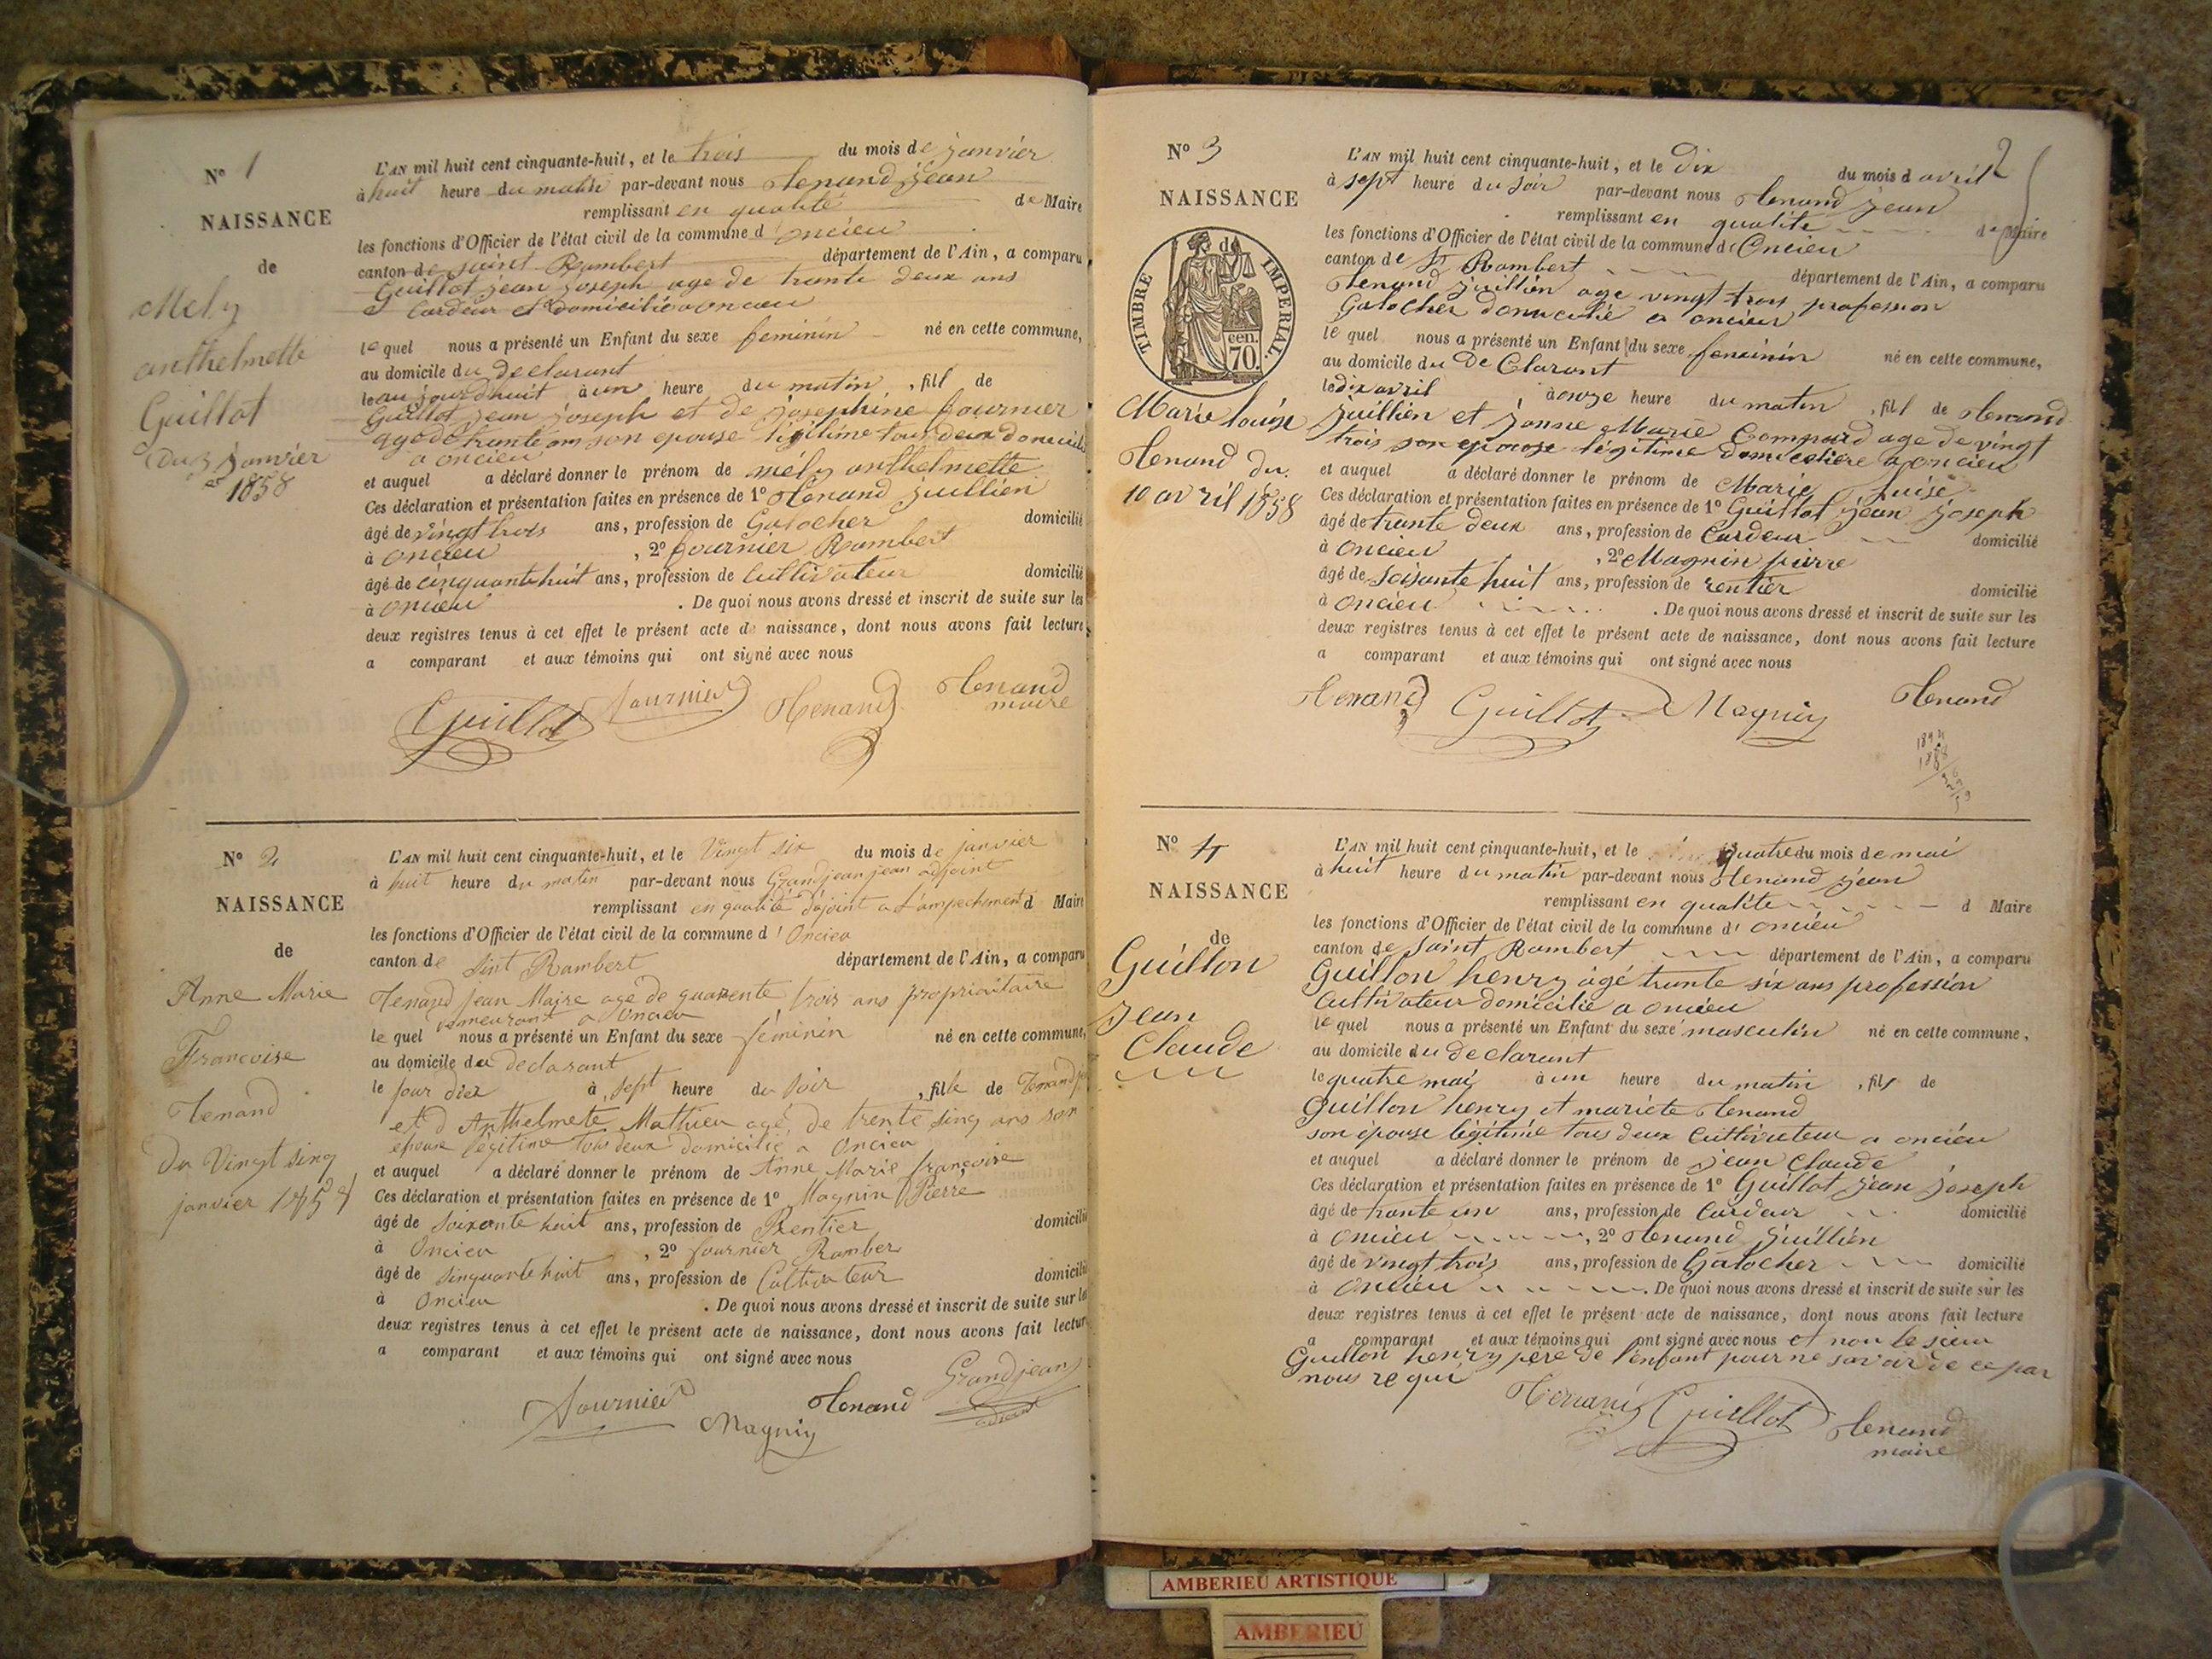 N° 1
NAISSANCE
de
Mely
anthelmette
Guillot
du 3 janvier
1858
L'AN mil huit cent cinquante-huit, et le trois du mois de janvier
à huit heure du matin par-devant nous Tenand jean
remplissant en qualité de Maire
les fonctions d'Officier de l'état civil de la commune d'oncieu
canton de saint Rambert département de l'Ain, a comparu
Guillot jean joseph age de trante deux ans
Cardeur et domicilié a oncieu
le quel nous a présenté un Enfant du sexe feminin né en cette commune,
au domicile du declarant
le aujourdhuit à un heure du matin , fill de
Guillot jean joseph et de josephine fournier
age de trante an son epouse légitime tous deux domicilié
a oncieu
et auquel a déclaré donner le prénom de mély anthelmette
Ces déclaration et présentation faites en présence de 1° Tenand juillien
âgé de vingt trois ans, profession de Galocher domicilié
à oncieu , 2° fournier Rambert
âgé de cinquante huit ans, profession de Cultivateur domicilié
à oncieu . De quoi nous avons dressé et inscrit de suite sur les
deux registres tenus à cet effet le présent acte de naissance, dont nous avons fait lecture
a comparant et aux témoins qui ont signé avec nous
Guillot fournier Tenand Tenand
maire
N° 2
NAISSANCE
de
Anne Marie
Francoise
Tenand
du Vingt sinq
janvier 1858
L'AN mil huit cent cinquante-huit, et le Vingt six du mois de janvier
à huit heure du matin par-devant nous Grandjean jean adjoint
remplissant en qualité d'ajoint a L'ampechement d Maire
les fonctions d'Officier de l'état civil de la commune d'Oncieu
canton de sint Rambert département de l'Ain, a comparu
Tenand jean Maire agé de quarente trois ans propriaitaire
demeurant a Oncieu
le quel nous a présenté un Enfant du sexe féminin né en cette commune,
au domicile du declarant
le jour dier à sept heure du soir , fille de Tenand
et d Anthelmete Mathieu agé de trente sinq ans son
epouse légitime tous deux domicilié a Oncieu
et auquel a déclaré donner le prénom de Anne Marie françoise
Ces déclaration et présentation faites en présence de 1° Magnin Pierre
âgé de soixante huit ans, profession de Rentier domicilié
à Oncieu , 2° fournier Ramber
âgé de sinquante huit ans, profession de Cultivateur domicilié
à Oncieu . De quoi nous avons dressé et inscrit de suite sur les
deux registres tenus à cet effet le présent acte de naissance, dont nous avons fait lecture
a comparant et aux témoins qui ont signé avec nous
fournier Magnin Tenand Grandjean
N° 3
2
NAISSANCE
de
TIMBRE IMPERIAL
cen.
70.
Marie louise
Tenand du
10 avril 1858
L'AN mil huit cent cinquante-huit, et le Dix du mois d avril
à sept heure du soir par-devant nous Tenand jean
remplissant en qualité de Maire
les fonctions d'Officier de l'état civil de la commune d'Oncieu
canton de St Rambert département de l'Ain, a comparu
Tenand juillien age vingt trois profession
Galocher domicilié a oncieu
le quel nous a présenté un Enfant du sexe feminin né en cette commune,
au domicile du De Clarant
le dix avril à onze heure du matin , fill de Tenand
juillien et janne Marie age de vingt
trois son epouse légitime a oncieu
et auquel a déclaré donner le prénom de Marie louise
Ces déclaration et présentation faites en présence de 1° Guillot jean joseph
âgé de trante deux ans, profession de Cardeur domicilié
à oncieu , 2° Magnin pierre
âgé de soisante huit ans, profession de rentier domicilié
à oncieu . De quoi nous avons dressé et inscrit de suite sur les
deux registres tenus à cet effet le présent acte de naissance, dont nous avons fait lecture
a comparant et aux témoins qui ont signé avec nous
Tenand Guillot Magnin Tenand
N° 4
NAISSANCE
de
Guillon
jean
Claude
L'AN mil huit cent cinquante-huit, et le quatre du mois de mai
à huit heure du matin par-devant nous Tenand jean
remplissant en qualité d Maire
les fonctions d'Officier de l'état civil de la commune d' oncieu
canton de saint Rambert département de l'Ain, a comparu
Guillon henry âgé trante six ans profession
Cultivateur domicilié a oncieu
le quel nous a présenté un Enfant du sexe masculin né en cette commune,
au domicile du declarant
le quatre mai à un heure du matin , fils de
Guillon henry et mariete Tenand
son épouse légitimé tous deux Cultivateur a oncieu
et auquel a déclaré donner le prénom de jean Claude
Ces déclaration et présentation faites en présence de 1° Guillot jean joseph
âgé de trante un ans, profession de Cardeur domicilié
à oncieu , 2° Tenand juillien
âgé de vingt trois ans, profession de Galocher domicilié
à oncieu . De quoi nous avons dressé et inscrit de suite sur les
deux registres tenus à cet effet le présent acte de naissance, dont nous avons fait lecture
a comparant et aux témoins qui ont signé avec nous et non le sieur
Guillon henry père de l'enfant pour ne savoir de ce par
nous requi
Tenand Guillot Tenand
maire
AMBERIEU ARTISTIQUE
AMBERIEU